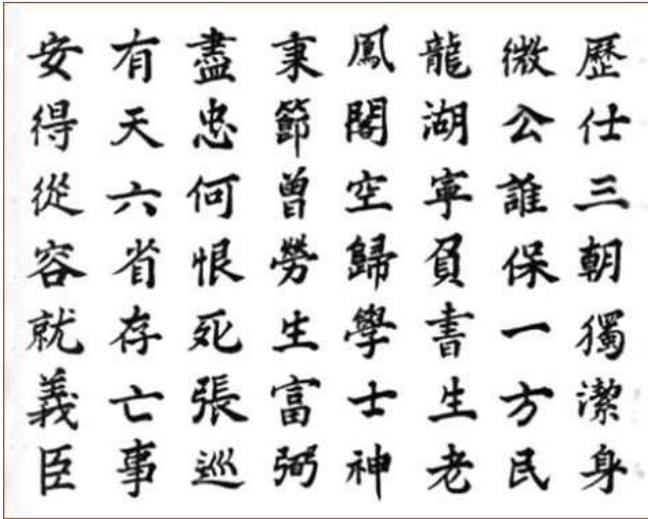 歷仕三朝獨潔身
微公誰保一方民
龍湖寧負書生老
鳳閣空歸學士神
秉節曾勞生富弼
盡忠何恨死張巡
有天六省存亡事
安得從容就義臣